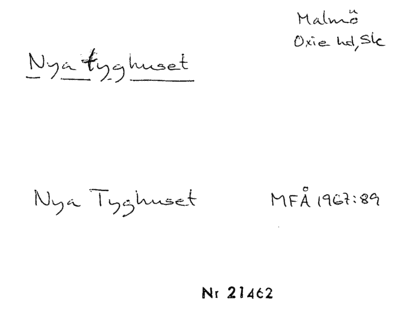 Malmö
Oxie hd, Sk
Nya tyghuset
Nya Tyghuset MFÅ 1967:89
Nr 21462